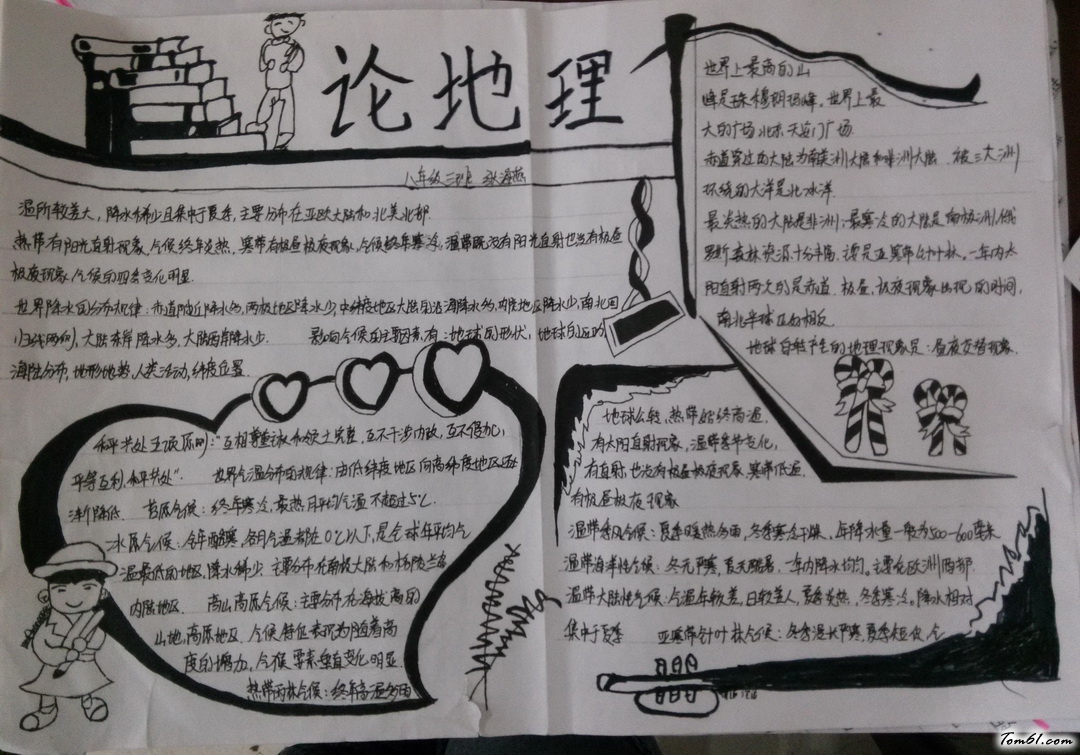 论地理
八年级三班 张海燕
温所较差大,降水稀少且集中于夏季,主要分布在亚欧大陆和北美北部
热带有阳光直射现象,气候终年炎热,寒带有极昼极夜现象,气候终年寒冷,温带既没有阳光直射也没有极昼
极夜现象,气候的四季变化明显
世界降水的分布规律:赤道附近降水多,两极地区降水少,中纬度地区大陆的沿海降水多,内陆地区降水少,南北回
归线两侧,大陆东岸降水多,大陆西岸降水少. 影响气候的主要因素有:地球的形状,地球的运动
海陆分布,地形地势,人类活动,纬度位置
和平共处五项原则:"互相尊重主权和领土完整,互不干涉内政,互不侵犯,
平等互利,和平共处". 世界气温分布的规律:由低纬度地区向高纬度地区逐
渐降低. 苔原气候:终年寒冷,最热月平均气温不超过5℃
冰原气候:全年酷寒,各月气温都在0℃以下,是全球年平均气
温最低的地区,降水稀少.主要分布在南极大陆和格陵兰岛
内陆地区. 高山,高原气候:主要分布在海拔高的
山地,高原地区.气候特征表现为随着高
度的增加,气候要素垂直变化明显.
热带雨林气候:终年高温多雨
世界上最高的山
峰是珠穆朗玛峰。世界上最
大的广场北京天安门广场.
赤道穿过的大陆为南美洲大陆和非洲大陆. 被三大洲
环绕的大洋是北冰洋.
最炎热的大陆是非洲;最寒冷的大陆是南极洲;俄
罗斯森林资源十分丰富,主要是亚寒带针叶林。一年内太
阳直射两次的是赤道.极昼,极夜现象出现的时间,
南北半球正好相反.
地球自转产生的地理现象是:昼夜交替现象.
地球公转,热带始终高温
有太阳直射现象,温带季节变化,
有直射,也没有极昼极夜现象,寒带低温
有极昼极夜现象
温带季风气候:夏季暖热多雨,冬季寒冷干燥,年降水量一般为500-600毫米
温带海洋性气候:冬无严寒,夏无酷暑,一年内降水均匀。主要在欧洲西部
温带大陆性气候:气温年较差,日较差大,夏季炎热,冬季寒冷。降水相对
集中于夏季 亚寒带针叶林气候:冬季漫长严寒,夏季短促,气
Tom61.com